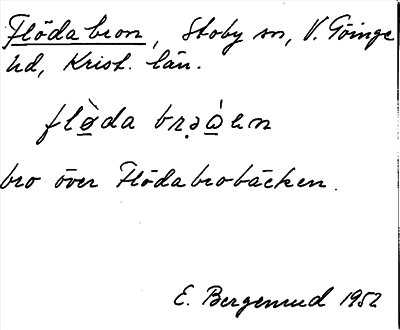 Flödabron, Stoby sn, V. Göinge
hd, Krist. län.
flø̀da brə
bro över Flödabrobäcken.
E. Bergenrud 1952